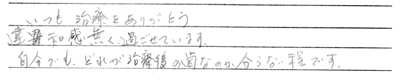 いつも治療をありがとう
違和感無く過ごせています。
自分でも、どれが治療後の歯なのか分らない程です。